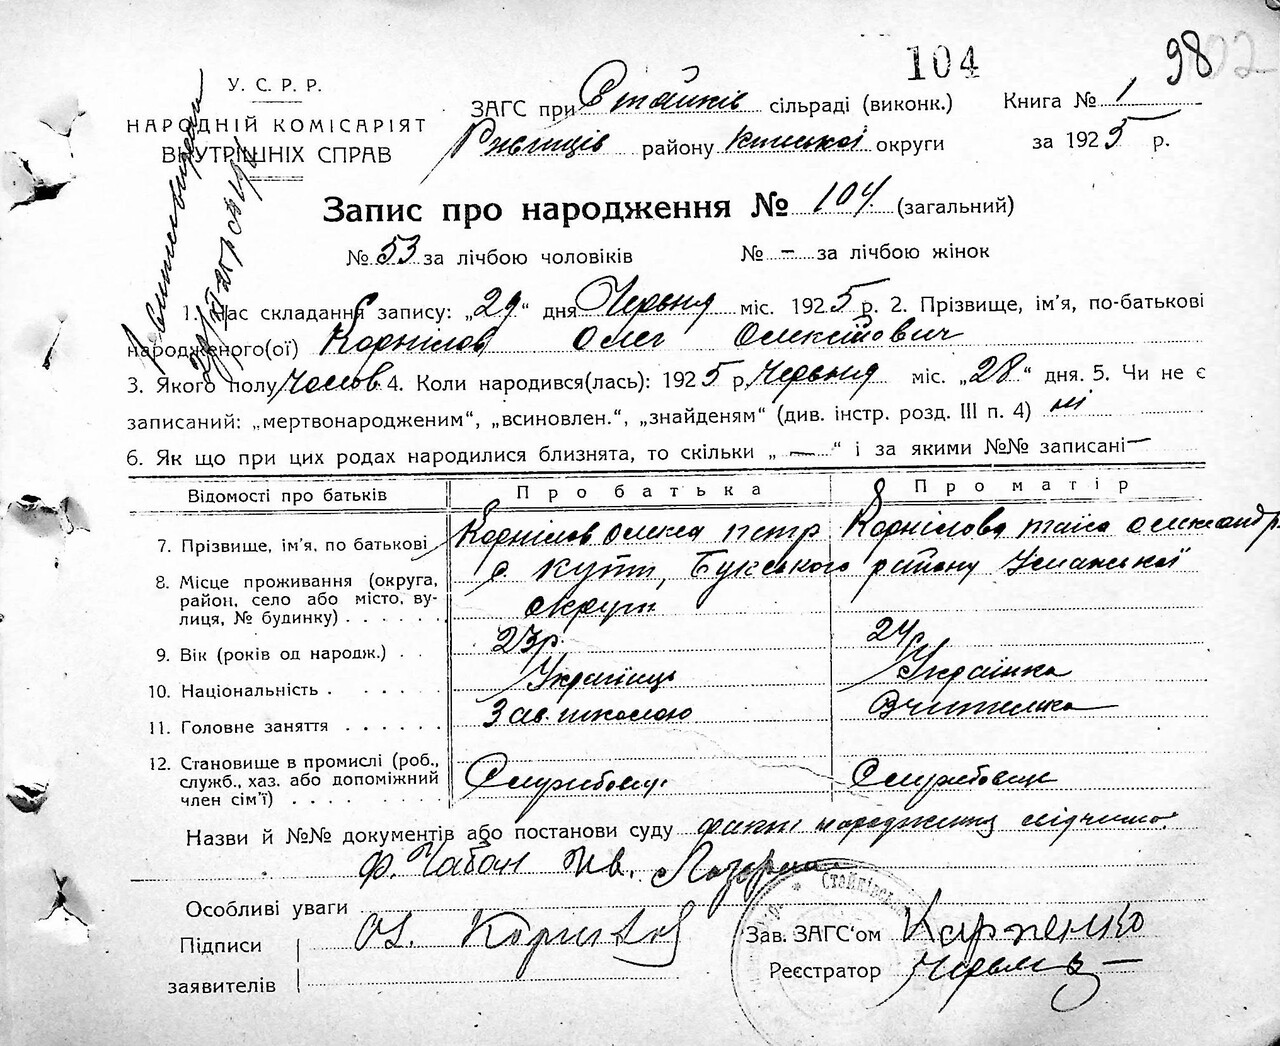 104
98
У. С. Р. Р.
НАРОДНІЙ КОМІСАРІЯТ
ВНУТРІШНІХ СПРАВ
ЗАГС при Стайків сільраді (виконк.) Книга № 1
Ржищів району київської округи за 1925 р.
Запис про народження № 104. (загальний)
№ 53 за лічбою чоловіків № — за лічбою жінок
1. Час складання запису: „29“ дня Червня міс. 1925 р. 2. Прізвище, ім'я, по-батькові
народженого(ої) Корнілов Олег Олексійович
3. Якого полу Чолов. 4. Коли народився(лась): 1925 р. Червня міс. „28“ дня. 5. Чи не є
записаний: „мертвонародженим“, „всиновлен.“, „знайденям“ (див. інстр. розд. III п. 4) ні
6. Як що при цих родах народилися близнята, то скільки „—“ і за якими №№ записані —
Відомості про батьків Про батька Про матір
7. Прізвище, ім'я, по батькові Корнілов Олекса петр Корнілова таїса олександр.
8. Місце проживання (округа, район, село або місто, вулиця, № будинку) с. Кути, Букського району Уманської
округи
9. Вік (років од народж.) 23 р. 24
10. Національність Українець Українка
11. Головне заняття Зав. школою Вчителька
12. Становище в промислі (роб., служб., хаз. або допоміжний член сім'ї) Службовц. Службовиця
Назви й №№ документів або постанови суду факт народження свідчимо:
Ф. Чабан Ив.
Особливі уваги
Підписи
заявителів Ол. Корнілов
Зав. ЗАГС'ом Карпенко
Реєстратор